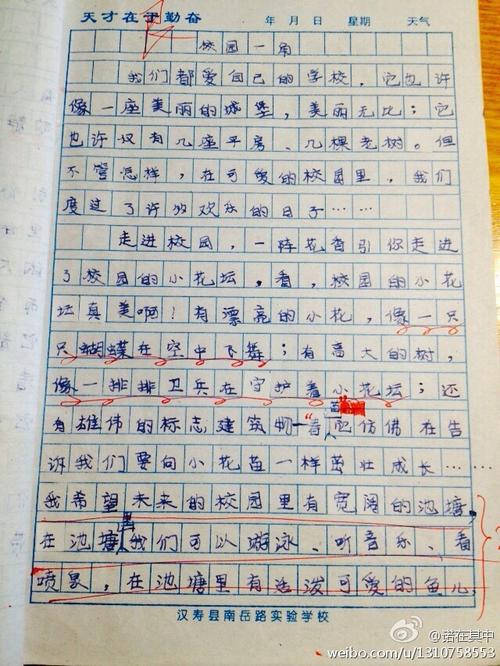 天才在于勤奋 年 月 日 星期 天气
校园一角
我们都爱自己的学校，它也许
像一座美丽的城堡，美丽无比；它
也许仅有几座平房、几棵老树。但
不管怎样，在可爱的校园里，我们
度过了许多欢乐的日子……
走进校园，一阵花香引你走进
了校园的小花坛，看，校园的小花
坛真美啊！有漂亮的小花，像一只
只蝴蝶在空中飞舞；有高大的树，
像一排排卫兵在守护着小花坛；还
有雄伟的标志建筑物—“春 仿佛在告
诉我们要向小花苗一样茁壮成长……
我希望未来的校园里有宽阔的池塘，
在池塘里我们可以游泳、听音乐、看
喷泉，在池塘里有活泼可爱的鱼儿，
汉寿县南岳路实验学校
@诺在其中
weibo.com/u/1310758553